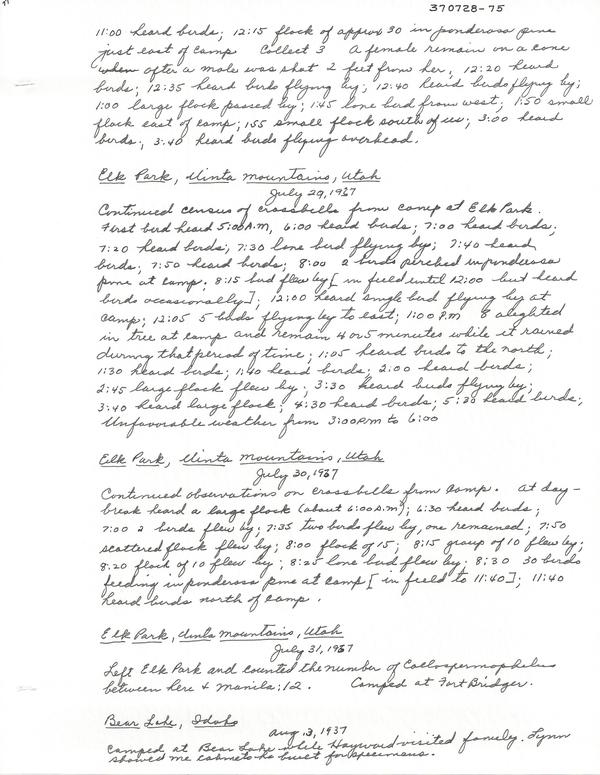 370728-75
11:00 heard birds; 12:15 flock of approx 30 in ponderosa pine
just east of camp Collect 3 A female remain on a cone
when after a male was shot 2 feet from her; 12:20 heard
birds; 12:35 heard birds flying by; 12:40 heard birds flying by;
1:00 large flock passed by; 1:45 lone bird from west; 1:50 small
flock east of camp; 155 small flock south of us; 3:00 heard
birds; 3:40 heard birds flying overhead.
Elk Park, Uinta Mountains, Utah
July 29, 1937
Continued census of crossbills from camp at Elk Park.
First bird heard 5:00 A.M, 6:00 heard birds; 7:00 heard birds;
7:20 heard birds; 7:30 lone bird flying by; 7:40 heard
birds; 7:50 heard birds; 8:00 2 birds perched in ponderosa
pine at camp; 8:15 bird flew by [in field until 12:00 but heard
birds occasionally]; 12:00 heard single bird flying by at
camp; 12:05 5 birds flying by to east; 1:00 P.M 8 alighted
in tree at camp and remain 4 or 5 minutes while it rained
during that period of time; 1:05 heard birds to the north;
1:30 heard birds; 1:40 heard birds; 2:00 heard birds;
2:45 large flock flew by; 3:30 heard birds flying by;
3:40 heard large flock; 4:30 heard birds; 5:30 heard birds;
Unfavorable weather from 3:00 P.M to 6:00
Elk Park, Uinta Mountains, Utah
July 30, 1937
Continued observations on crossbills from camp. At day-
break heard a large flock (about 6:00 A.M); 6:30 heard birds;
7:00 2 birds flew by; 7:35 two birds flew by, one remained; 7:50
scattered flock flew by; 8:00 flock of 15; 8:15 group of 10 flew by;
8:20 flock of 10 flew by; 8:25 lone bird flew by; 8:30 30 birds
feeding in ponderosa pine at camp [in field to 11:40]; 11:40
heard birds north of camp.
Elk Park, Uinta Mountains, Utah
July 31, 1937
Left Elk Park and counted the number of Callospermophilus
between here & Manila: 12. Camped at Fort Bridger.
Bear Lake, Idaho
Aug. 3, 1937
Camped at Bear Lake while Hayward visited family. Lynn
showed me cabinets he built for specimens.